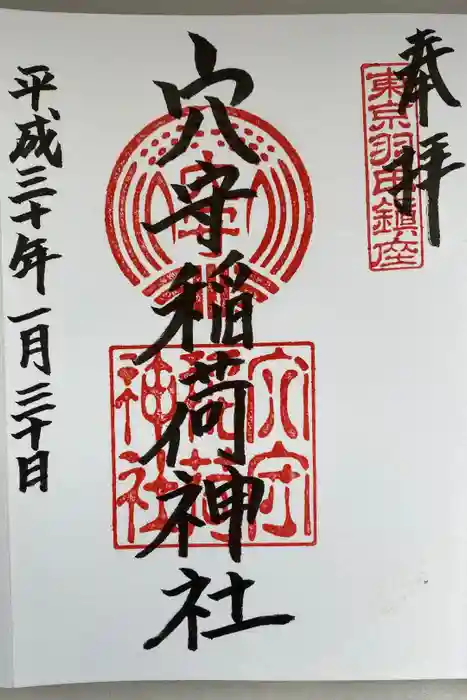 奉拝
東京羽田鎮座
穴守稲荷神社
穴守
稲荷
神社
平成三十年一月三十日